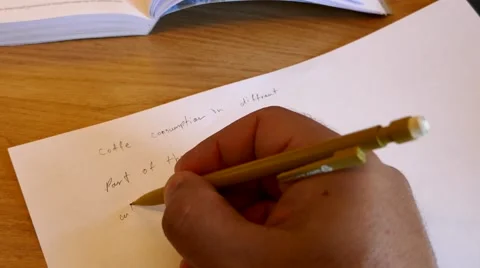 coffe consumption in diffrent
Part of th